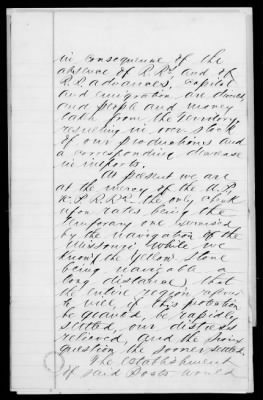 in consequence of the
absence of R.Rs. and of
R.R. advances, capital
and emigration are driven
and people and money
both from the Territory,
resulting in over stock
of our productions and
a corresponding decrease
in imports.
At present we are
at the mercy of the U.P.
R.Rs. the only check
upon rates being the
temporary one furnished
by the navigation of the
Missouri, while we
know (the Yellow Stone
being navigable a
long distance) that
the entire region
will, if this protection
be granted, be rapidly
settled, our distress
relieved, and the
question the sooner settled.
The establishment
of said Posts would